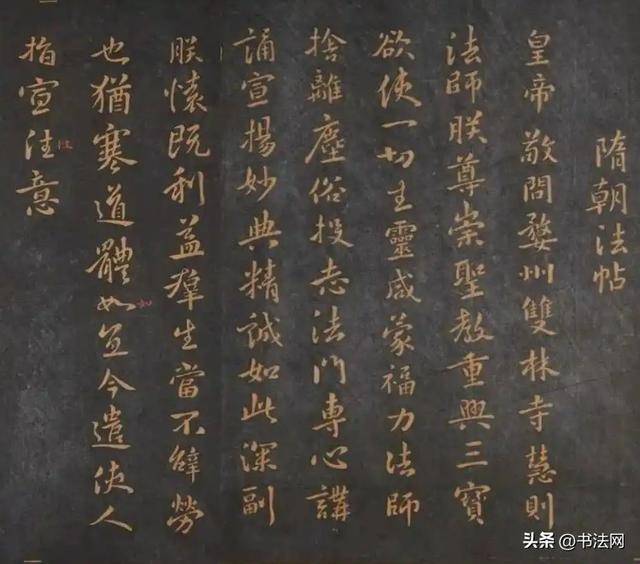 隋朝法帖
皇帝敬問婺州雙林寺慧則
法師朕尊崇聖教重興三寶
欲使一切生靈咸蒙福力法師
捨離塵俗投志法門專心講
誦宣揚妙典精誠如此深副
朕懷既利益羣生當不辭勞
也猶寒道體如宜今遣使人
指宣往意
如
头条 @书法网